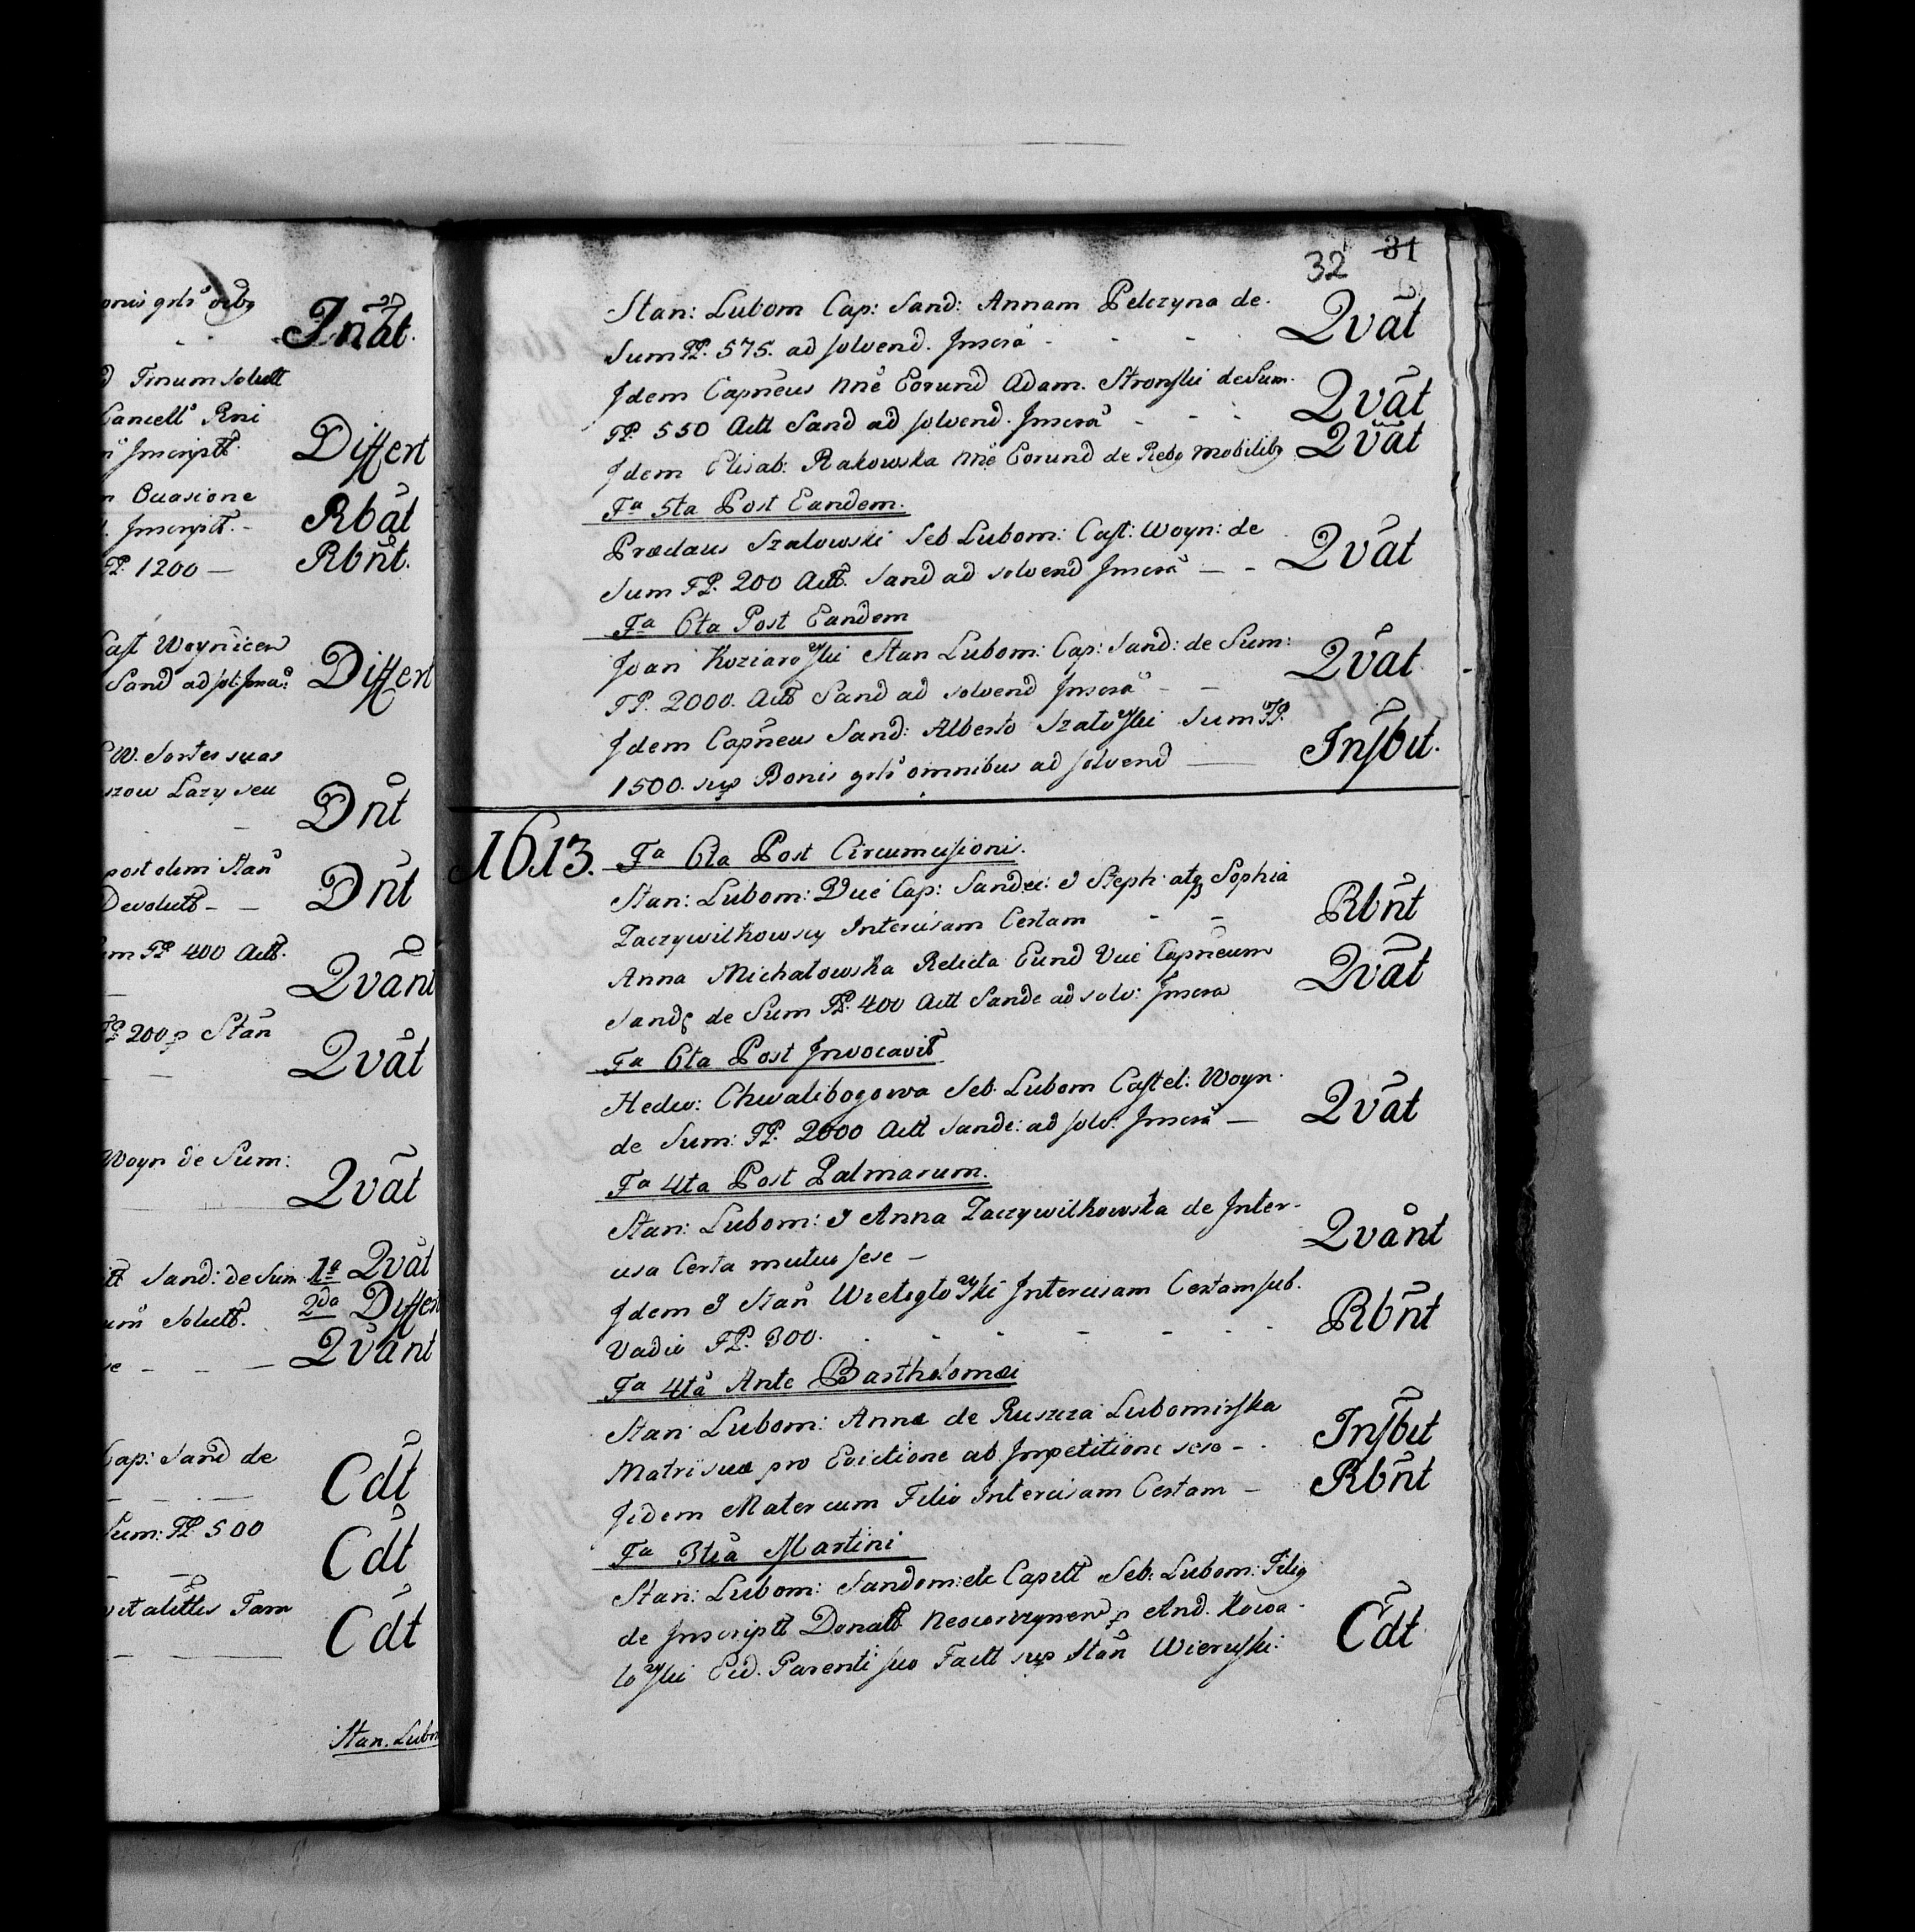 onis grlr oibq
Ināt.
d Tinum Solutt
Cancell Rni
Inscriptt.
Differt
n Occasione
Inscriptt. -
Rbāt
FP. 1200 —
Rbn̄t.
Cast Woynicen
Sand ad sol: Inra:
Differt
W. Sortes suas
szow Lazy seu
Dn̄t
post olim Stan
Devolutt - —
Dn̄t
um FP 400 Actt.
Qvānt
FP 200 p Stan
Qvāt
Woyn de Sum:
Qvāt
Sand: de Sum 1a Qvāt
Solutt. 2da Differt
Qvānt
Cap: Sand de
Cdt
Sum: FP 500
Cdt
vitalittis Tam
Cdt
Stan. Lubo
32 31
Stan: Lubom Cap: Sand: Annam Pelczyna de.
Sum FP. 575. ad solvend. Inscra - - - Qvāt
Idem Capneus nnē Eorund Adam. Stronski de Sum.
FP. 550 Actt Sand ad solvend. Inscra - - - Qvāt
Idem Elisab: Rakowska nnē Eorund de Rebq mobilibq Qvāt
Fa 5ta Post Eandem.
Prædaus Szalowski Seb Lubom: Cast: Woyn: de
Sum FP. 200 Actt. Sand ad solvend Inscra — - Qvāt
Fa 6ta Post Eandem
Joan Koziarowski Stan Lubom: Cap: Sand: de Sum:
FP. 2000. Actt Sand ad solvend Inscra - - Qvāt
Idem Capneus Sand: Alberto Szalowski Sum FP.
1500. sup Bonis grlr omnibus ad solvend — Insbit.
1613. Fa 6ta Post Circumcisioni.
Stan: Lubom: Vuē Cap: Sandec: & Steph: atq Sophia
Zaczywilkowscy Intercisam Certam - - Rbn̄t
Anna Michalowska Relicta Eund Vuē Capneum
Sandc de Sum FP. 400 Actt Sande ad solv: Inscra Qvāt
Fa 6ta Post Invocavit
Hedw: Chwalibogowa Seb. Lubom Castel: Woyn.
de Sum: FP. 2000 Actt Sande: ad solv: Inscra — Qvāt
Fa 4ta Post Palmarum.
Stan: Lubom: & Anna Zaczywilkowska de Inter-
cisa Certa mutuo sese — Qvānt
Idem & Stan Wieloglowski Intercisam Certam sub.
Vadio FP. 300. - - - - - - Rbn̄t
Fa 4ta Ante Bartholomæi
Stan: Lubom: Annæ de Ruszcza Lubomirska
Matri suæ pro Evictione ab Impetitione sese - . Insbit
Iidem Mater cum Filio Intercisam Certam — Rbn̄t
Fa 3tia Martini
Stan: Lubom: Sandom: etc Capitt Seb: Lubom: Filiq
de Inscriptt Donatt Neocorczynen p And. Kowa-
lowski Eid. Parenti suo Factt sup Stan Wieruski. Cdt